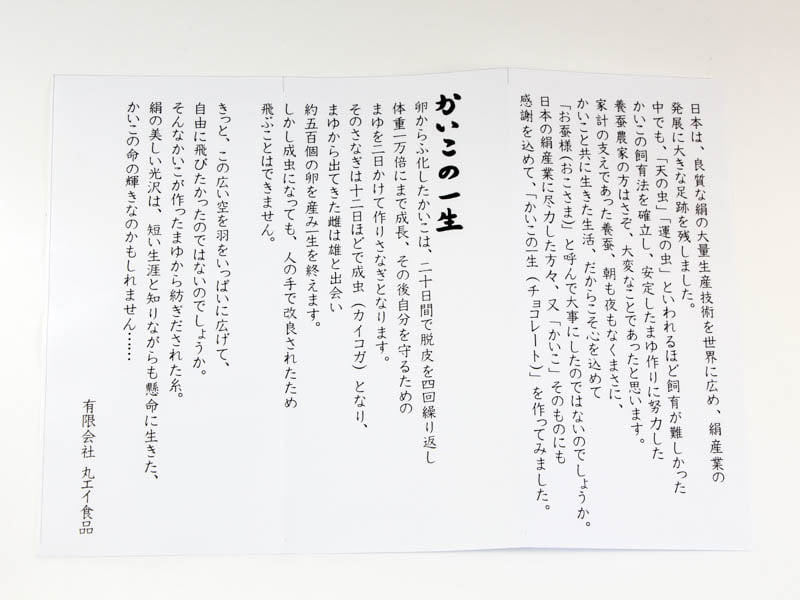 日本は、良質な絹の大量生産技術を世界に広め、絹産業の
発展に大きな足跡を残しました。
中でも、「天の虫」「運の虫」といわれるほど飼育が難しかった
かいこの飼育法を確立し、安定したまゆ作りに努力した
養蚕農家の方はさぞ、大変なことであったと思います。
家計の支えであった養蚕、朝も夜もなくまさに、
かいこと共に生きた生活、だからこそ心を込めて
「お蚕様(おこさま)」と呼んで大事にしたのではないのでしょうか。
日本の絹産業に尽力した方々、又「かいこ」そのものにも
感謝を込めて、「かいこの一生(チョコレート)」を作ってみました。
かいこの一生
卵からふ化したかいこは、二十日間で脱皮を四回繰り返し
体重一万倍にまで成長、その後自分を守るための
まゆを二日かけて作りさなぎとなります。
そのさなぎは十二日ほどで成虫(カイコガ)となり、
まゆから出てきた雌は雄と出会い
約五百個の卵を産み一生を終えます。
しかし成虫になっても、人の手で改良されたため
飛ぶことはできません。
きっと、この広い空を羽をいっぱいに広げて、
自由に飛びたかったのではないのでしょうか。
そんなかいこが作ったまゆから紡ぎだされた糸。
絹の美しい光沢は、短い生涯と知りながらも懸命に生きた、
かいこの命の輝きなのかもしれません……
有限会社 丸エイ食品